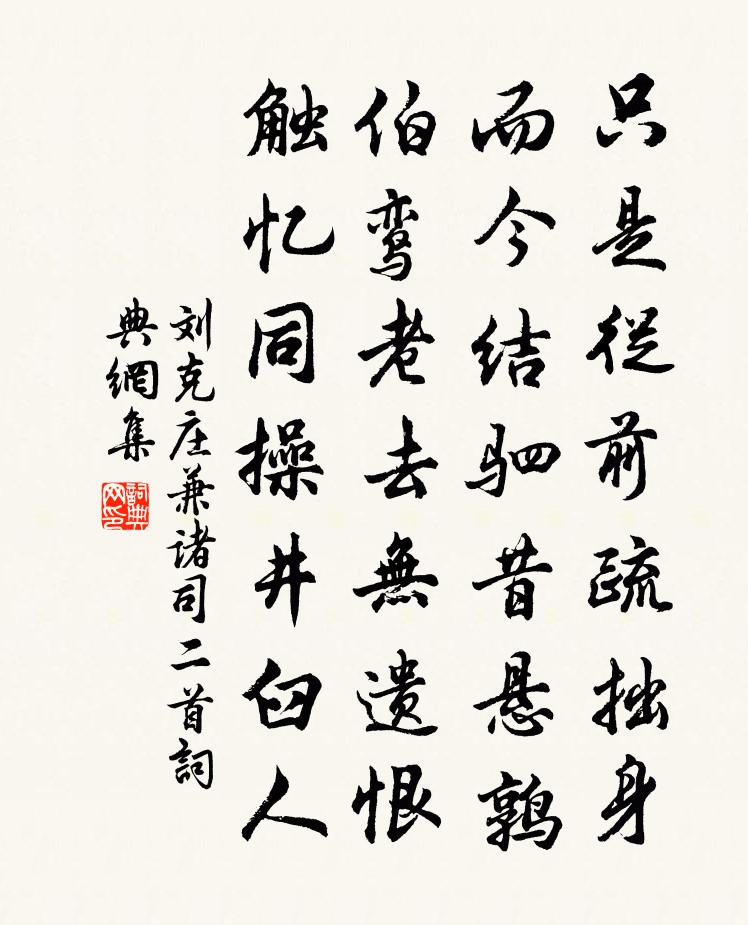 只是從前疏拙身
而今结驷昔悬鹑
伯鸾老去無遗恨
触忆同操井臼人
刘克庄兼诸司二首詞
典網集
詞典网印